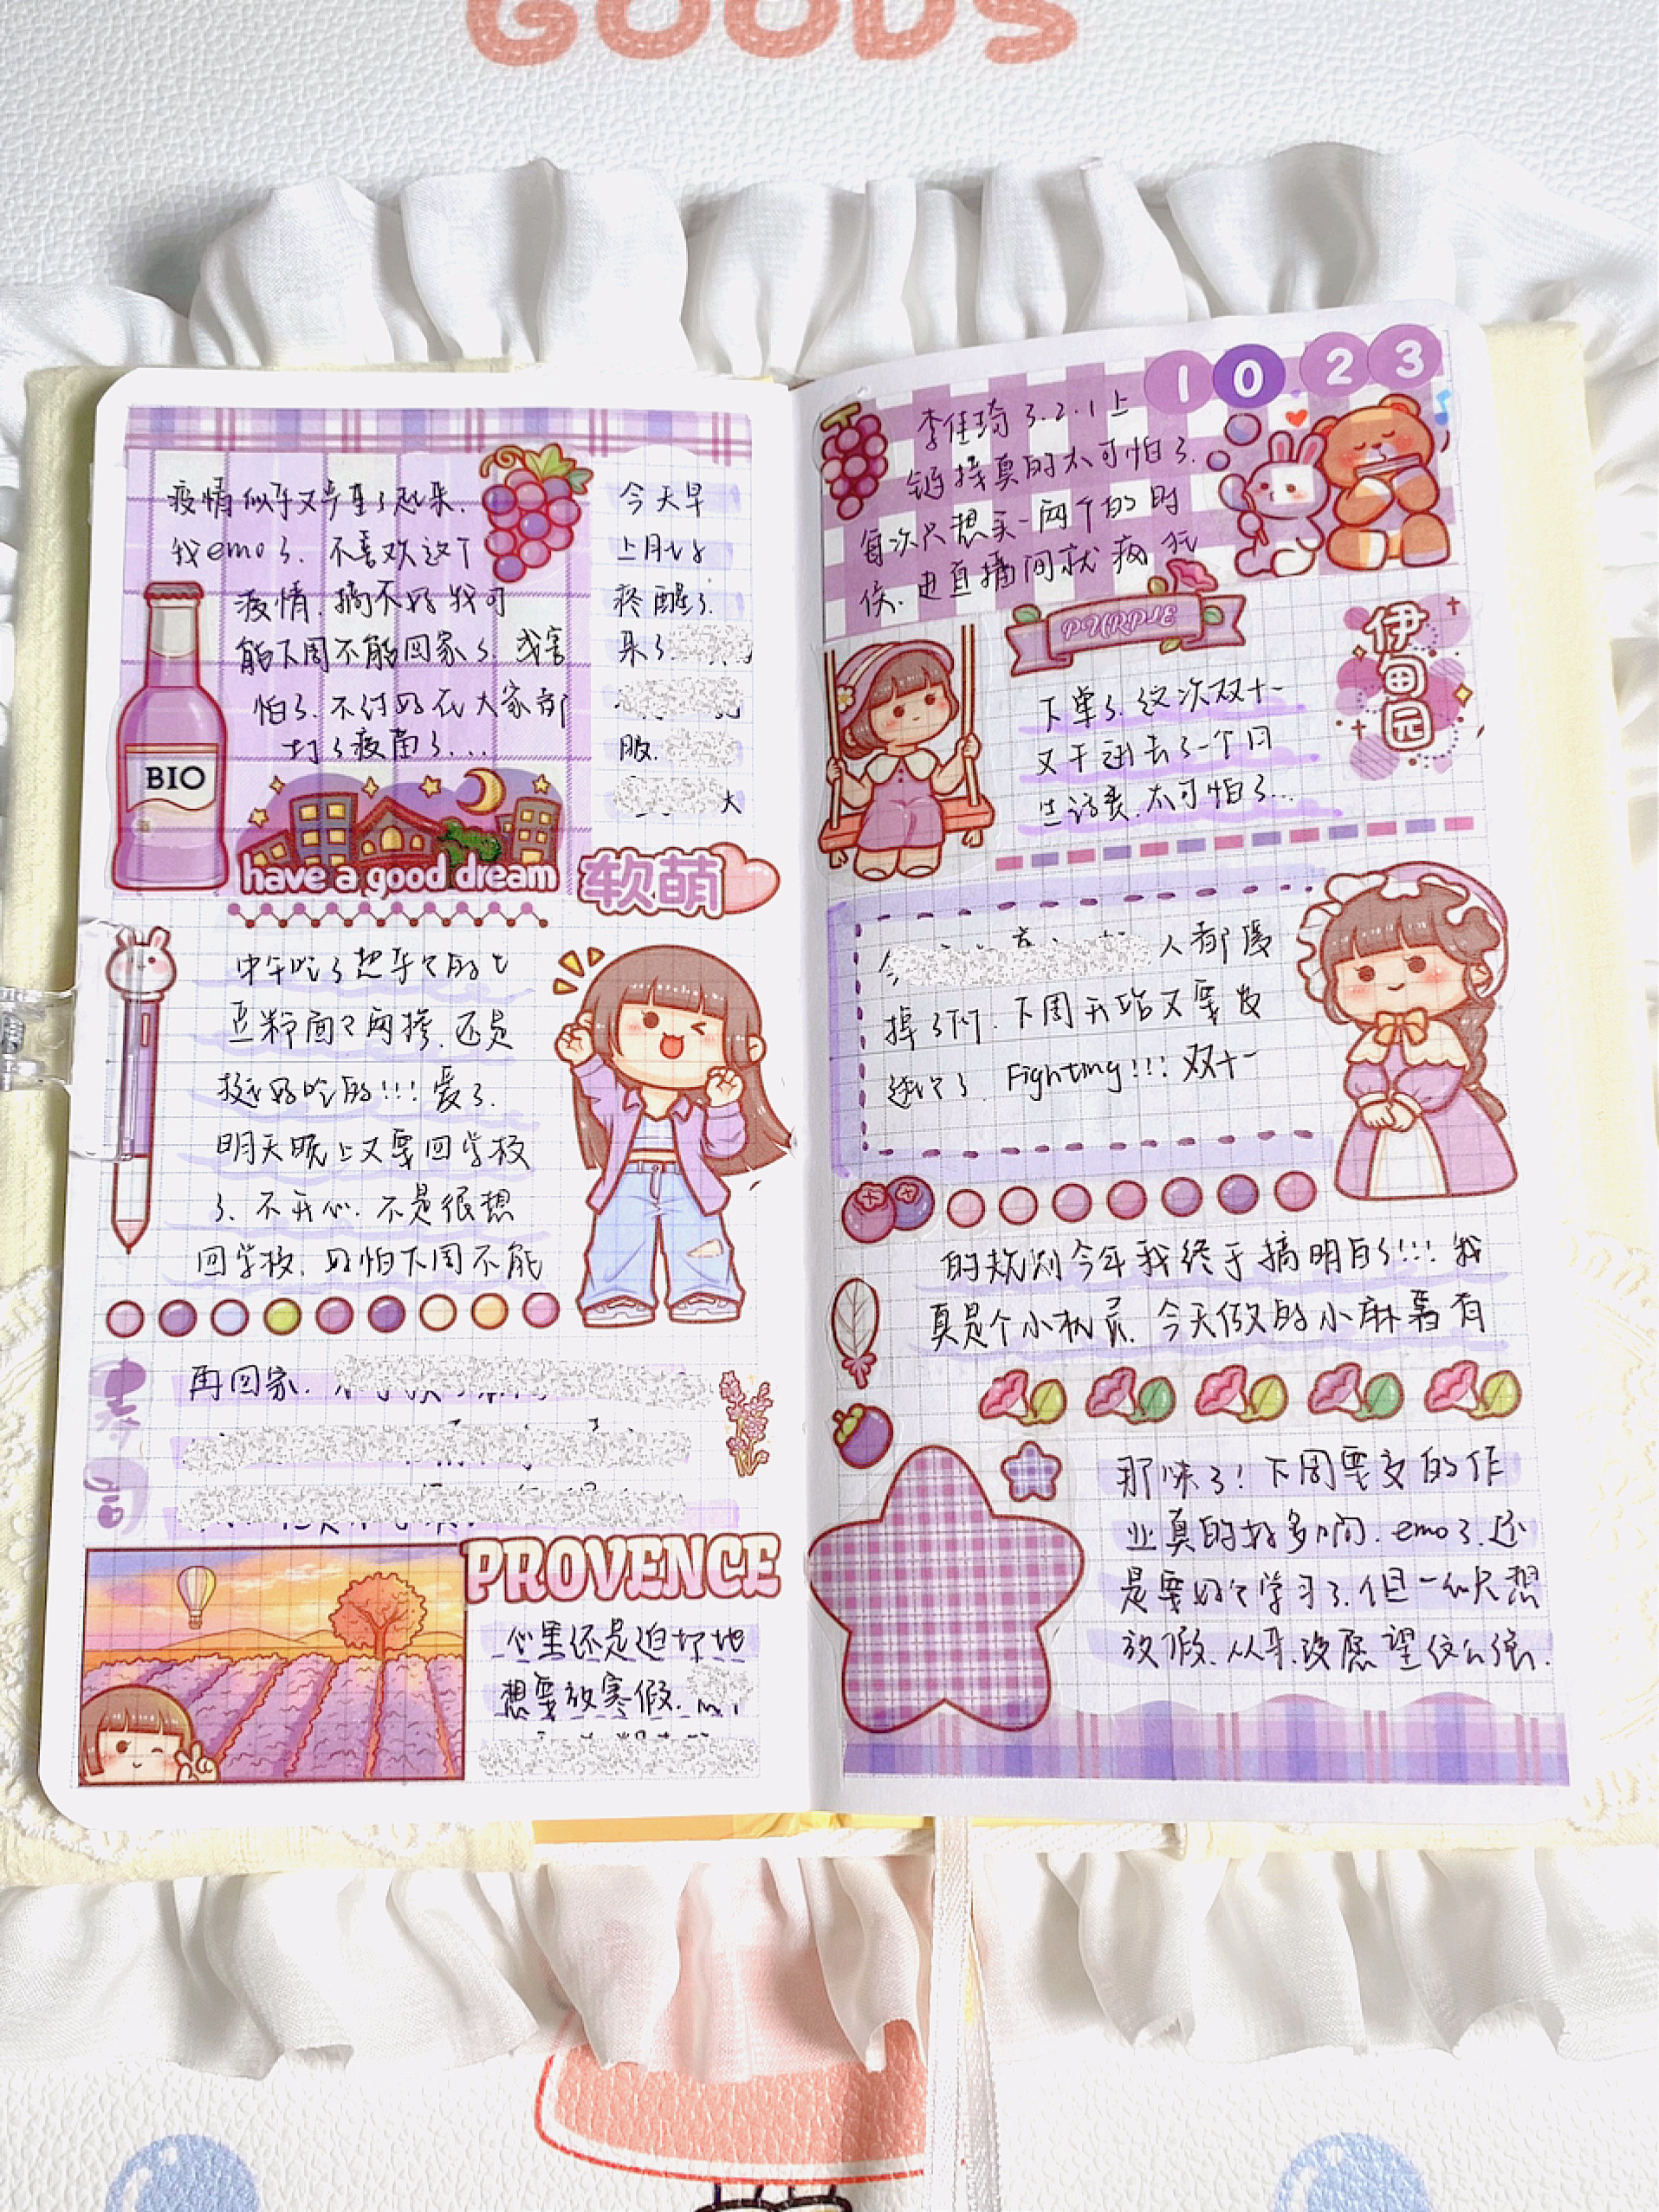 GOODS
疫情似乎又严重了起来.
我emo了. 不喜欢这个
疫情. 搞不好我可
能下周不能回家了. 或害
怕了. 不过好在大家都
打了疫苗了...
BIO
have a good dream
今天早
上肚子
疼醒了.
来了
服.
大
软萌
中午吃了想年久的七
丘粉面又网搀. 还是
挺好吃的!!! 爱了.
明天晚上又要回学校
了. 不开心. 不是很想
回学校. 好怕下周不能
寿司
再回家.
PROVENCE
心里还是迫切地
想要放寒假.
1023
李佳琦 3.2.1上
链接真的太可怕了.
每次只想买一两个的时
候. 进直播间就疯狂
PURPLE
伊甸园
下单了. 这次双十一
又干进去了一个月
生活费. 太可怕了...
今
人都废
掉了呀. 下周开始又要发
Fighting!!! 双十一
的规划今年我终于搞明白了!!! 我
真是个小机灵. 今天做的小麻薯有
那味了! 下周要交的作
业真的好多啊. emo了. 还
是要好好学习了. 但一心只想
放假. 从来没愿望这么强.